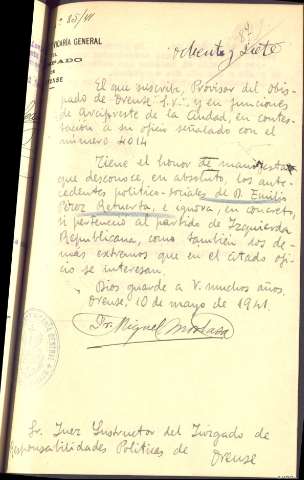 nº 85/41
87
ochenta y siete
VICARÍA GENERAL
DEL
OBISPADO
DE
ORENSE
El que suscribe, Provisor del Obis-
pado de Orense S.V. y en funciones
de Arcipreste de la Ciudad, en contes-
tación a su oficio señalado con el
número 4014
Tiene el honor de manifestar
que desconoce, en absoluto, los ante-
cedentes político-sociales de D. Emilio
Pérez Retuerta, e ignora, en concreto,
si perteneció al partido de Izquierda
Republicana, como también los de-
más extremos que en el citado ofi-
cio se interesan.
Dios guarde a V. muchos años.
Orense, 10 de mayo de 1941.
Dr. Miguel
Sr. Juez Instructor del Juzgado de
Responsabilidades Políticas de Orense